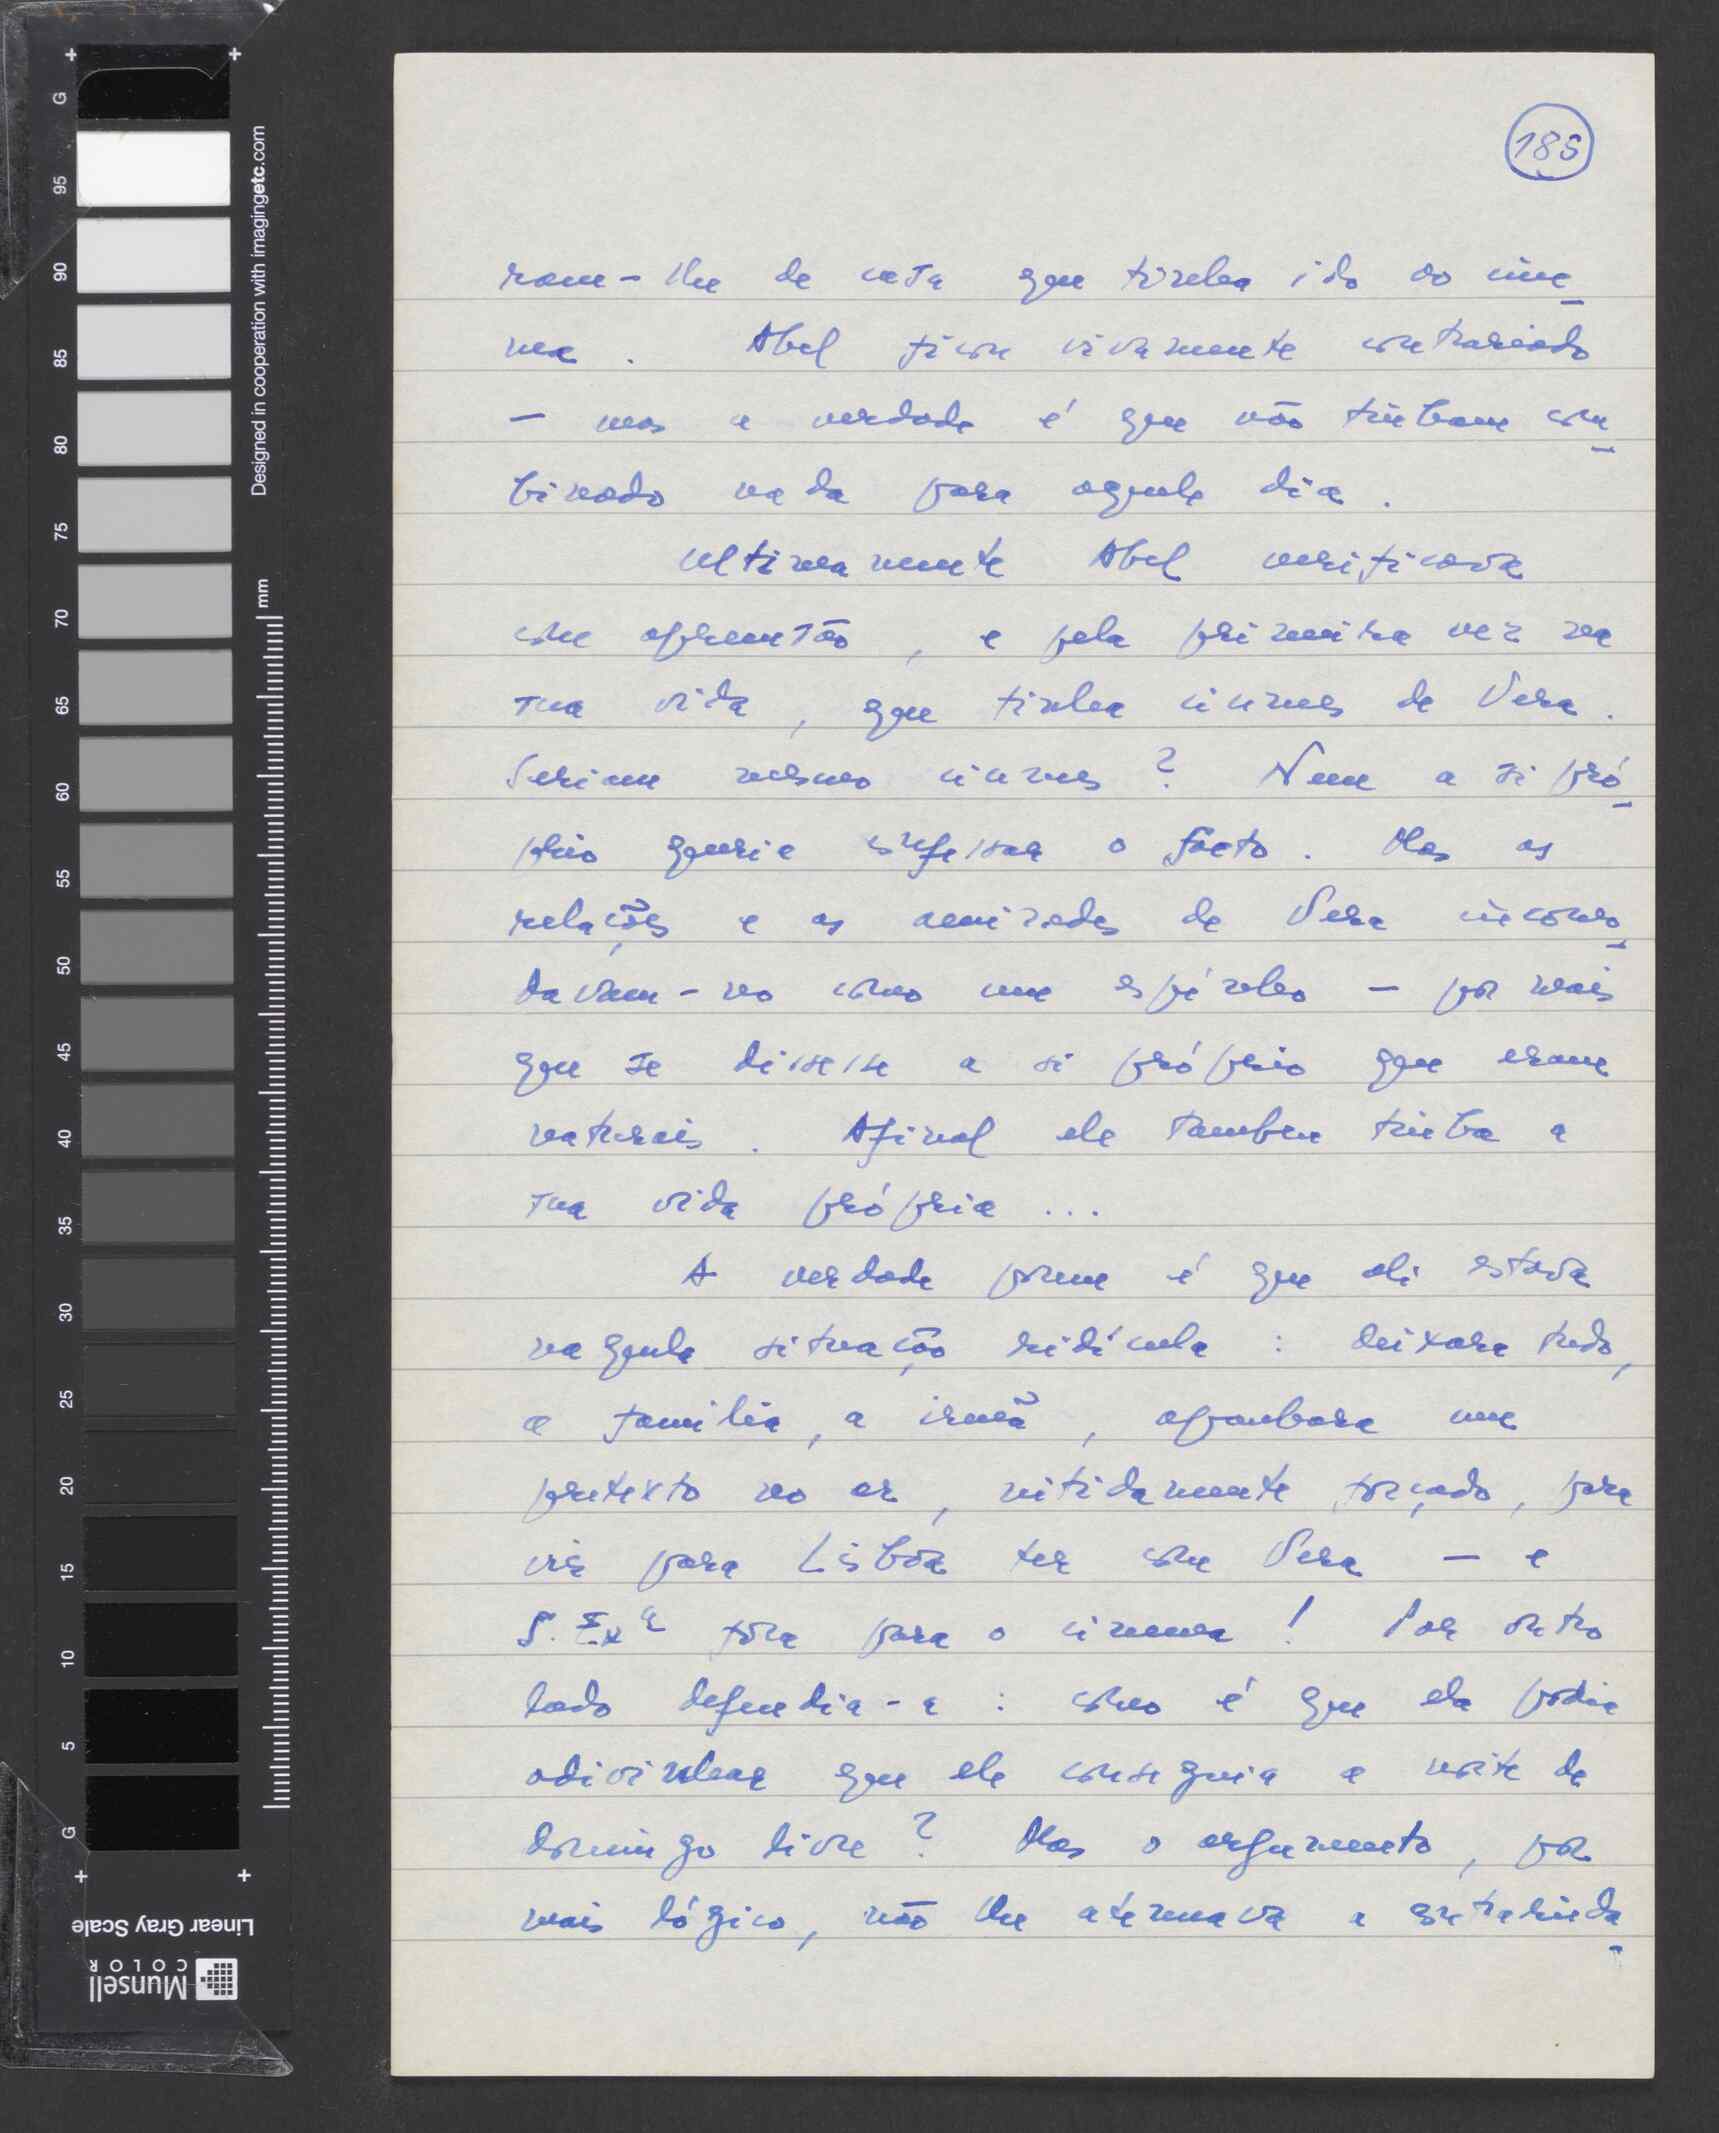 185
ram-lhe de casa que tinha ido ao cine-
ma. Abel ficou vivamente contrariado
– mas a verdade é que não tinham com-
binado nada para aquele dia.
Ultimamente Abel verificava
com apreensão, e pela primeira vez na
sua vida, que tinha ciumes de Vera.
Seriam mesmo ciumes? Nem a si pró-
prio queria confessar o facto. Mas as
relações e as amizades de Vera incomo-
davam-no como um espinho – por mais
que se dissesse a si próprio que eram
naturais. Afinal ele tambem tinha a
sua vida própria ...
A verdade porem é que ali estava
naquela situação ridícula: deixara tudo,
a familia, a irmã, apanhara um
pretexto no ar, nitidamente forçado, para
vir para Lisboa ter com Vera – e
S. Exª fora para o cinema! Por outro
lado defendia-a: como é que ela podia
adivinhar que ele conseguia a noite de
domingo livre? Mas o argumento, por
mais lógico, não lhe atenuava a contrarieda-
G
95
90
85
80
75
70
65
60
55
50
45
40
35
30
25
20
15
10
5
G
Designed in cooperation with imagingetc.com
mm
Linear Gray Scale
Munsell
COLOR